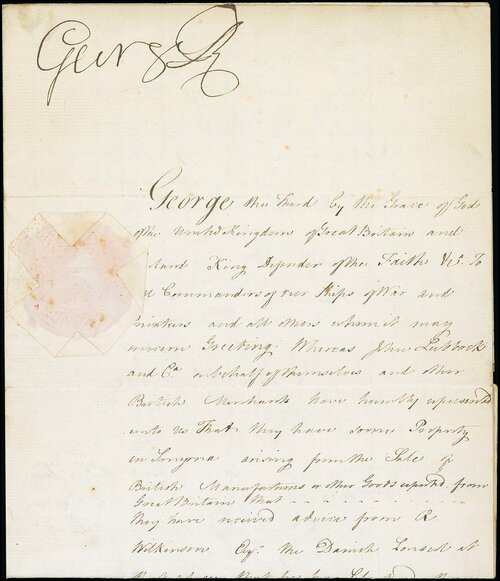 George R
George the Third by the Grace of God
of the United Kingdom of Great Britain and
land King Defender of the Faith &c. To
Commanders of our Ships of War and
and all others whom it may
Greeting. Whereas John Lubbock
and Co. on behalf of themselves and other
British Merchants have humbly represented
unto Us That they have some Property
in Smyrna arising from the Sale of
British Manufactures or other Goods exported from
Great Britain that
they have received advice from R
Wilkinson Esqr. the Danish Consul at